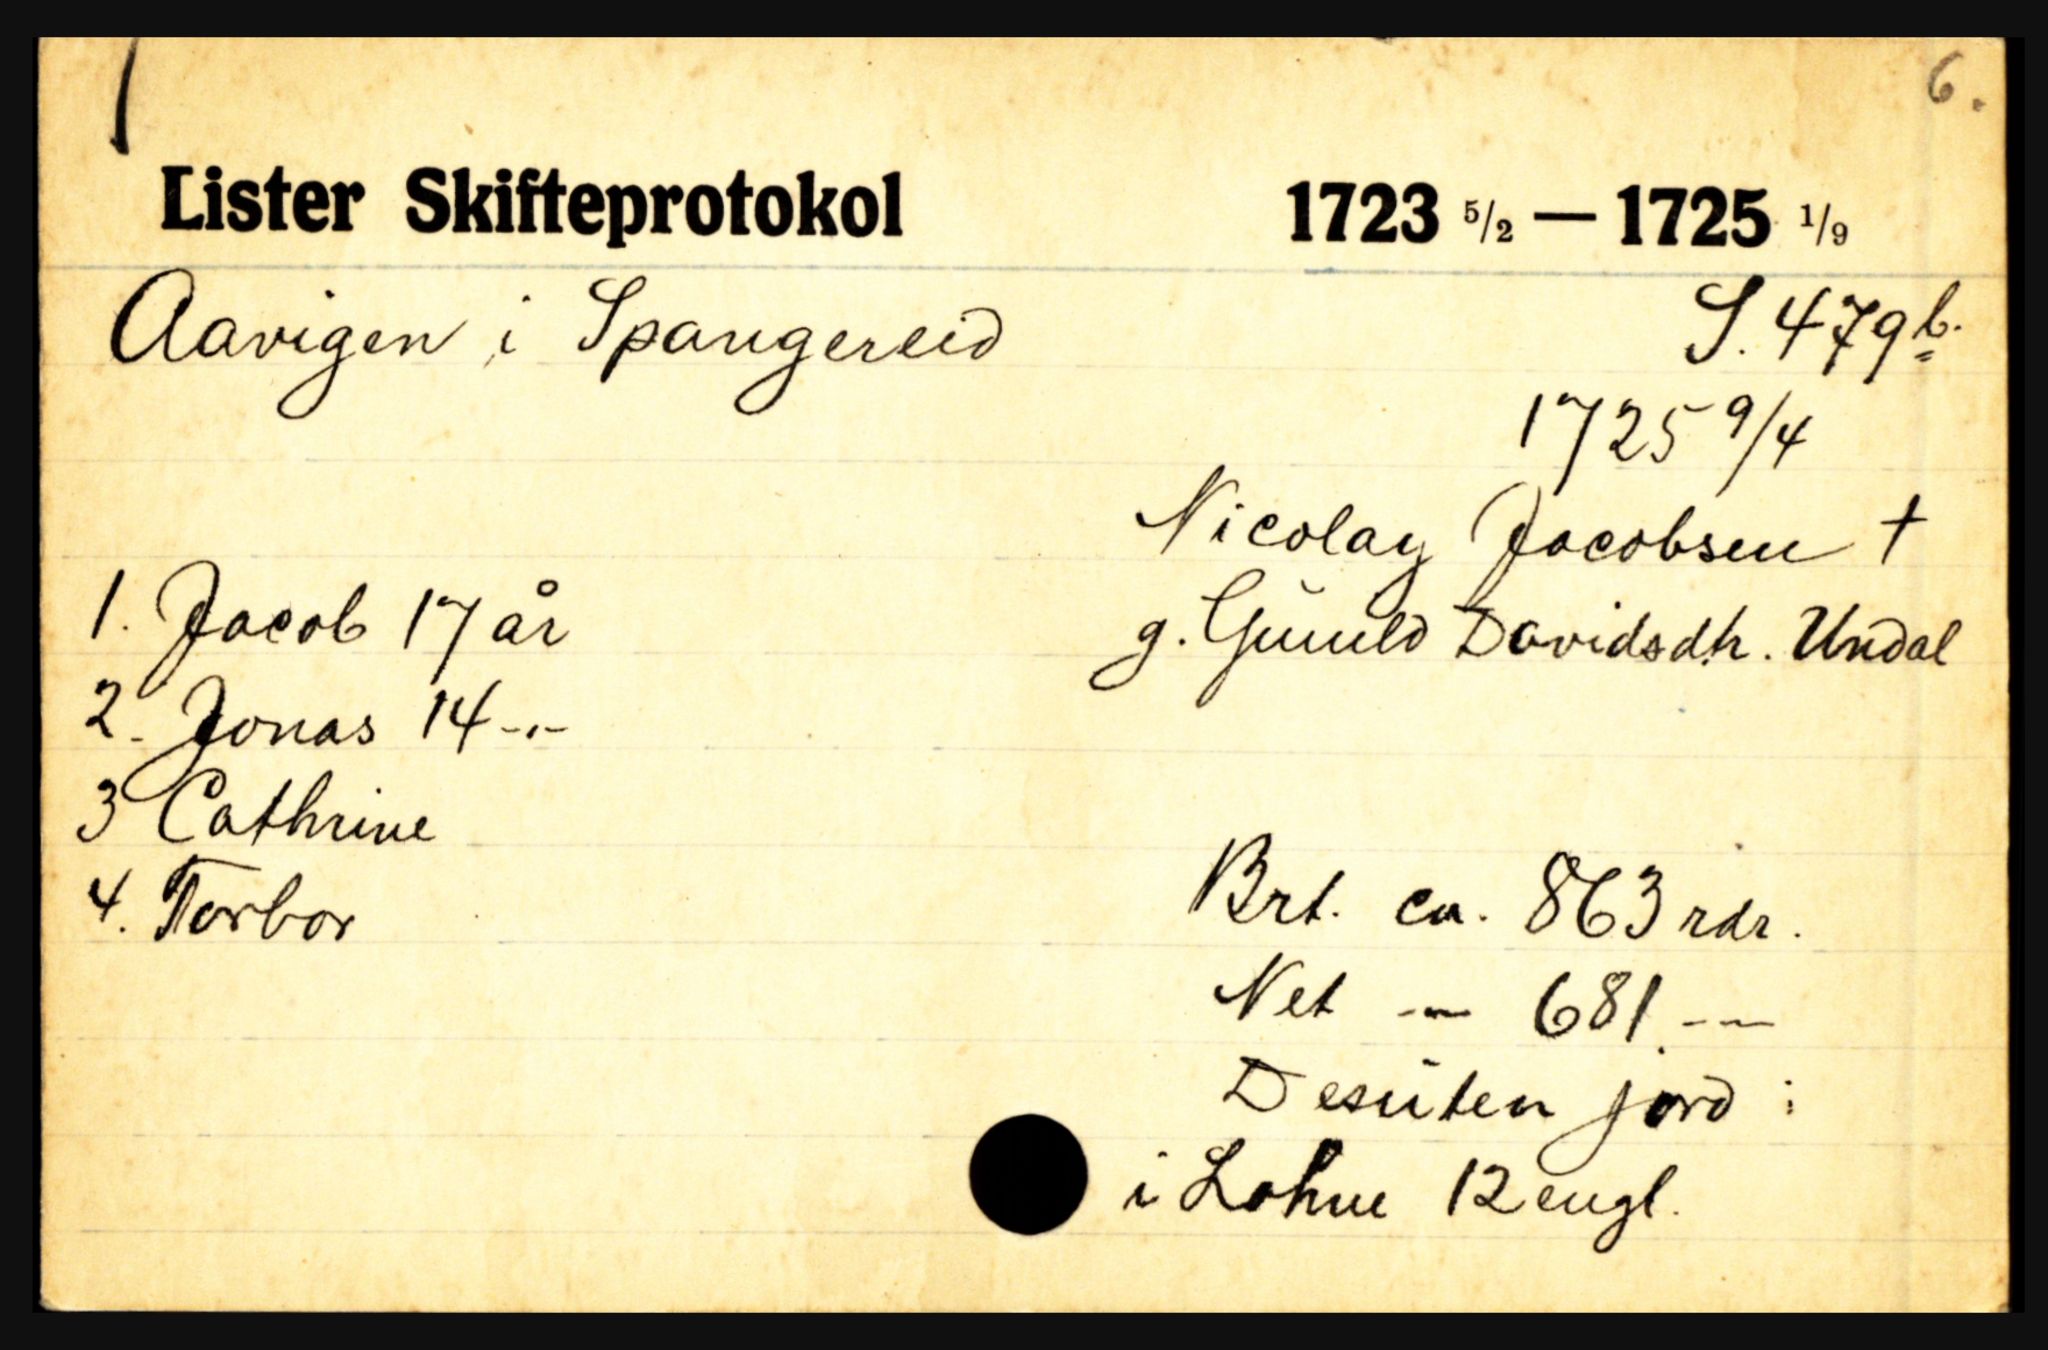 6.
Lister Skifteprotokol 1723 5/2 — 1725 1/9
Aavigen i Spangereid S. 479 b.
1725 9/4
Nicolay Jacobsen †
g. Gunild Davidsdh. Undal
1. Jacob 17 år
2. Jonas 14 -"-
3 Cathrine
4. Torbor
Brt. ca. 863 rdr.
Net — 681 —
Desuten jord :
i Lohne 12 engl.